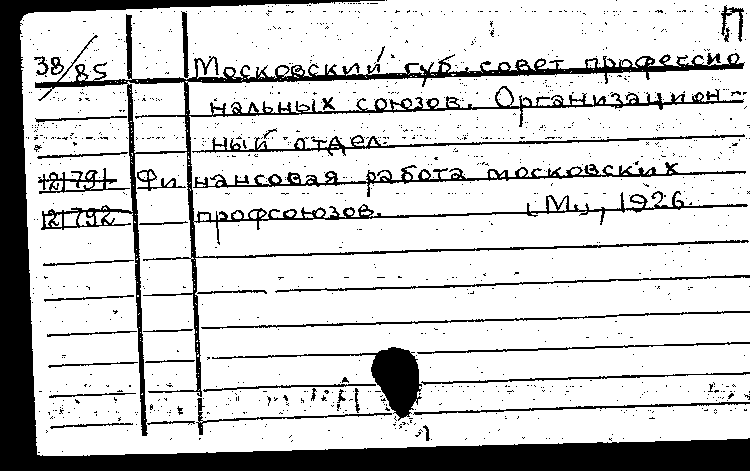 П
38/85 Московский губ. совет профессио
нальных союзов. Организацион-
ный отдел.
121791 Финансовая работа московских
121792 профсоюзов. [М.], 1926.